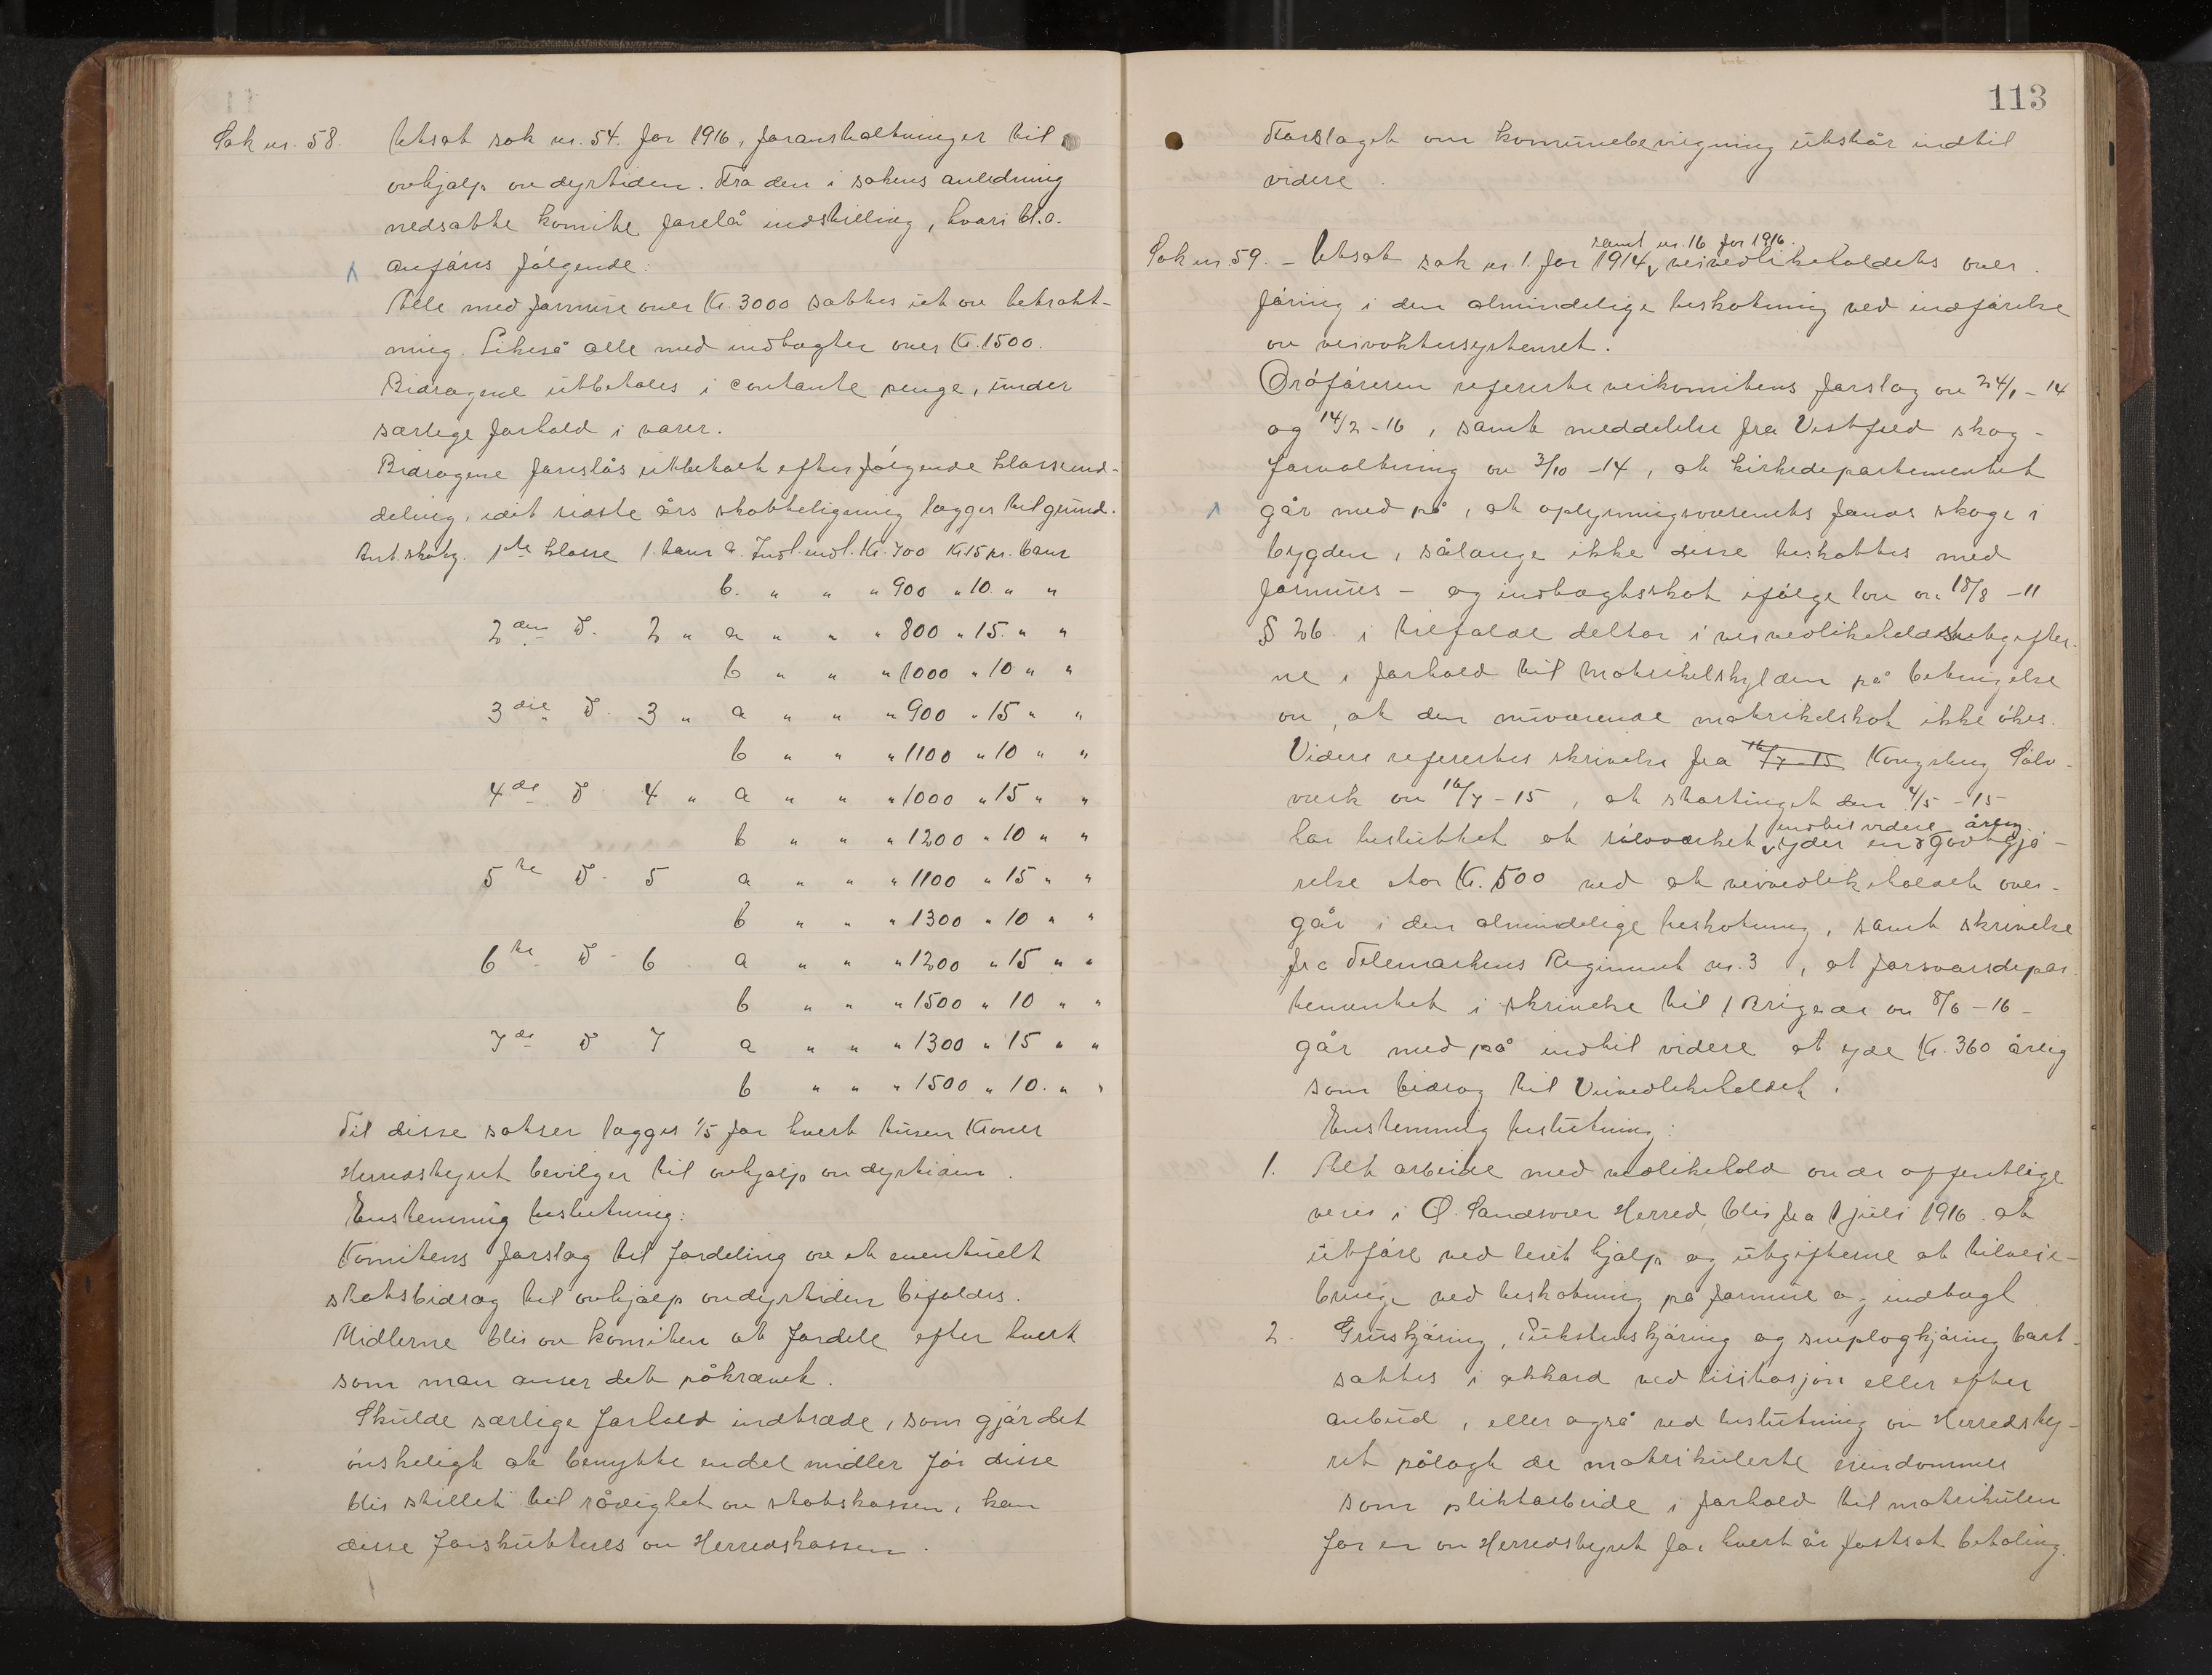 Sak nr. 58. Utsat sak nr. 54. for 1916, foranstaltninger til
avhjælp av dyrtiden. Fra den i sakens anledning
nedsatte komite forelå indstilling, hvori bl.a.
anføres følgende:
Alle med formue over Kr. 3000 sættes ut av betrakt-
ning. Likeså alle med indtægter over Kr. 1500.
Bidragene utbetales i contante penge, under
særlige forhold i varer.
Bidragene foreslås utbetalt efter følgende klasseind-
deling, idet sidste års skatteligning lægges til grund.
Ant. skatg. 1ste klasse 1 barn a. Indt. indt. Kr. 700 Kr 15 pr. barn
b. " " " 900 " 10. " "
2den D. 2 " a " " " 800 " 15. " "
b " " " 1000 " 10 " "
3die D. 3 " a " " " 900 " 15 " "
b " " " 1100 " 10 " "
4de D 4 " a " " " 1000 " 15 " "
b " " " 1200 " 10 " "
5te D. 5 a " " " 1100 " 15 " "
b " " " 1300 " 10 " "
6te D. 6 a " " " 1200 " 15 " "
b " " " 1500 " 10 " "
7de D 7 a " " " 1300 " 15 " "
b " " " 1500 " 10. " "
Til disse satser lægges 1/5 for hvert tusen Kroner
Herredstyret bevilger til avhjælp av dyrtiden.
Enstemmig beslutning:
Komitens forslag til fordeling av et eventuelt
statsbidrag til avhjælp av dyrtiden bifaldes.
Midlerne blir av komiten at fordele efter hvert
som man anser det påkrævet.
Skulde særlige forhold indtræde, som gjør det
ønskeligt at benytte endel midler før disse
blir stillet til rådighet av statskassen, kan
disse forskutteres av Herredskassen.
113
Forslaget om kommunebevigning utstår indtil
videre.
samt nr. 16 for 1916.
Sak nr. 59. - Utsat sak nr 1. for 1914, veivedlikeholdets over-
føring i den almindelige beskatning ved indførelse
av veivoktersystemet.
Ordføreren refererte veikomitens forslag av 24/1 - 14
og 14/2 - 16, samt meddelelse fra Vestfjeld skog-
forvaltning av 3/10 - 14, at kirkedepartementet
går med på, at oplysningsvæsenets fonds skoge i
bygden, sålænge ikke disse beskattes med
formues - og indtægtsskat ifølge lov av 18/8 - 11
§ 26. i tilfælde deltar i veivedlikeholdsutgifter-
ne i forhold til matrikelskylden på betingelse
av, at den nuværende matrikelskat ikke økes.
Videre referertes skrivelse fra 16/7 - 15 Kongsberg Sølv-
værk av 16/7 - 15, at stortinget den 4/5 - 15
indtil videre årlig
har besluttet at sølvværket yder en godtgjø-
relse stor Kr. 500 ved at veivedlikeholdet over-
går i den almindelige beskatning, samt skrivelse
fra Telemarkens Regiment nr. 3, at forsvarsdepar-
tementet i skrivelse til 1 Brigade av 8/6 - 16 -
går med på indtil videre at yde Kr. 360 årlig
som bidrag til Veivedlikeholdet.
Enstemmig beslutning:
1. Alt arbeide med vedlikehold av de offentlige
veie i Ø. Sandsvær Herred, blir fra 1 juli 1916 at
utføre ved leiet hjælp og utgifterne at tilveie-
bringe ved beskatning på formue og indtægt
2. Gruskjøring, Pukstenskjøring og sneplogkjøring bort-
sættes i akkord ved lisitasjon eller efter
anbud, eller også ved beslutning av Herredsty-
ret pålagt de matrikulerte eiendommer
som pliktarbeide i forhold til matrikulen
for en av Herredstyret for hvert år fastsat betaling.